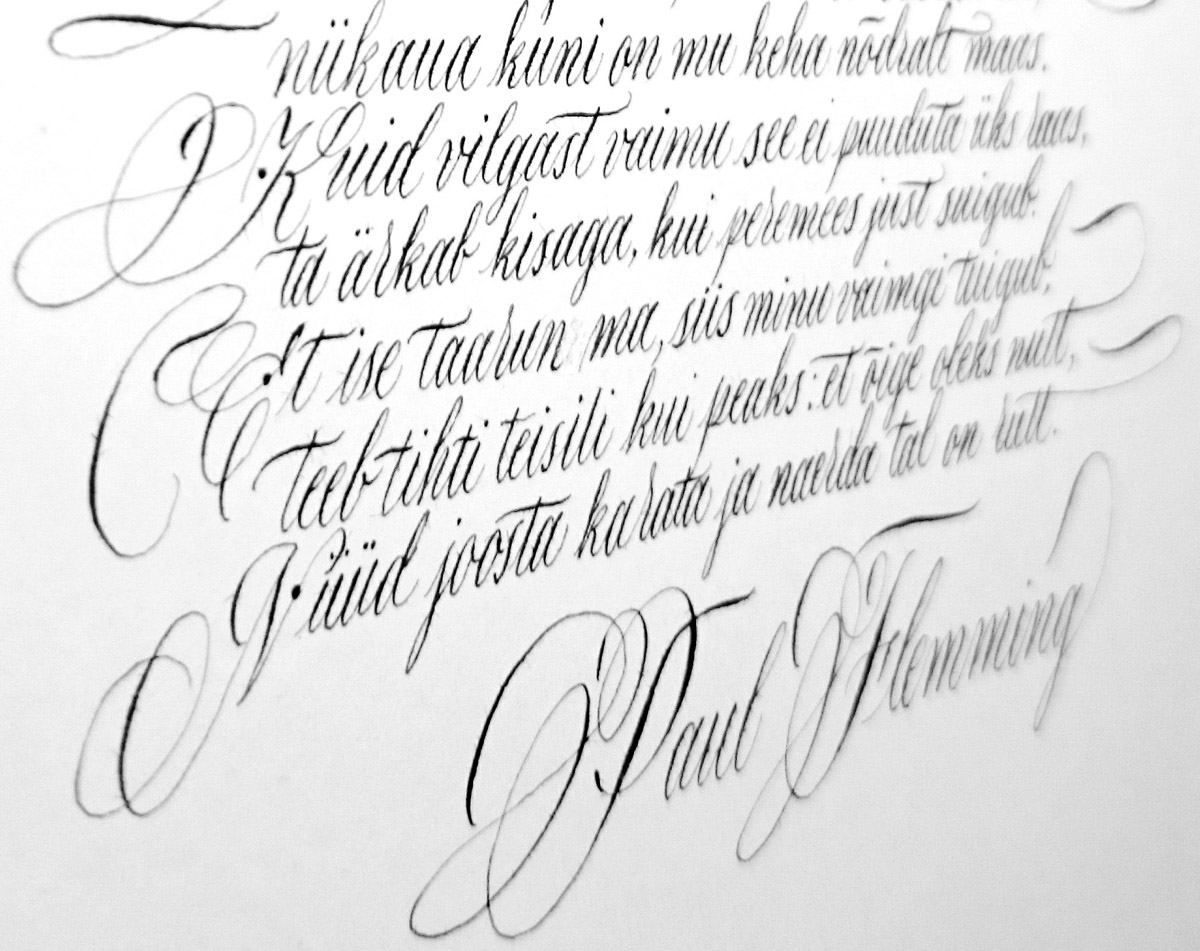 niikaua kuni on mu keha nõdralt maas.
Kuid vilgast vaimu see ei puuduta üks raas,
ta ärkab kisaga, kui peremees just suigub.
Et ise taarun ma, siis minu vaimgi tuigub,
teeb tihti teisiti kui peaks: et õige oleks nutt,
Nüüd joosta karata ja naerda tal on rutt.
Paul Flemming